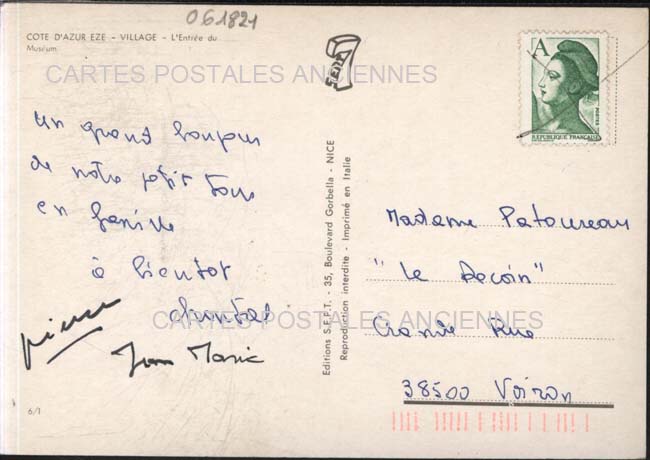 061821
COTE D'AZUR EZE - VILLAGE - L'Entrée du
Muséum
CARTES POSTALES ANCIENNES
un grand bonjour
de notre petit tour
en famille
à bientot
Chantal
pierre
Jean Marie
6/1
Editions S.E.P.T. - 35, Boulevard Gorbella - NICE
Reproduction interdite - Imprimé en Italie
SEPT
A
POSTES
REPUBLIQUE FRANÇAISE
Madame Patoureau
"Le Recoin"
Grande Rue
38500 Voiron
CARTES POSTALES ANCIENNES